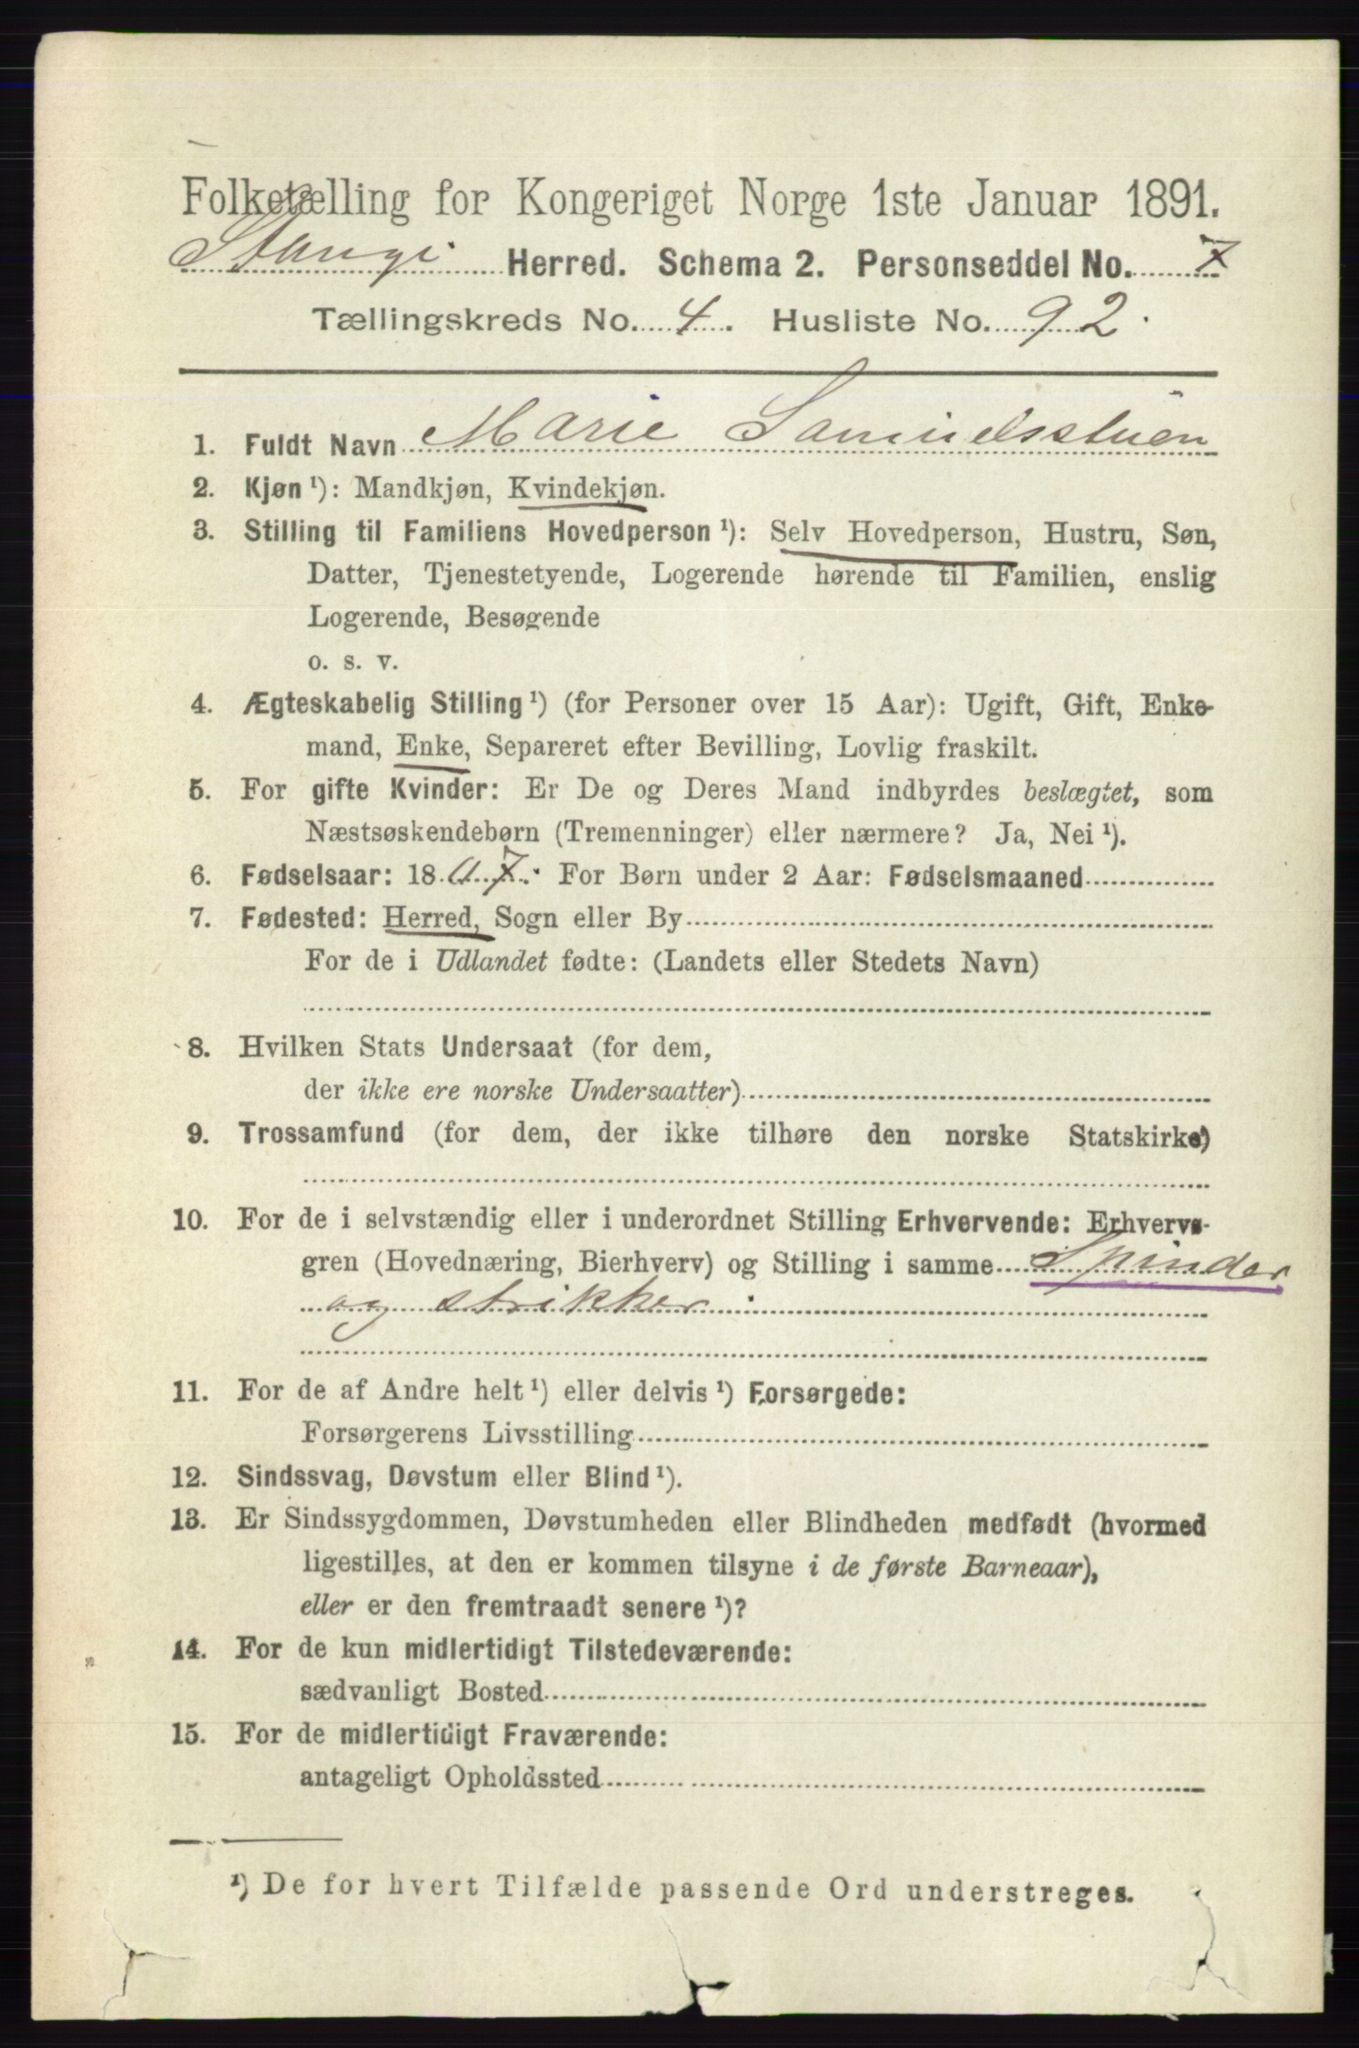 Folketælling for Kongeriget Norge 1ste Januar 1891.
Stange Herred. Schema 2. Personseddel No. 7
Tællingskreds No. 4. Husliste No. 92.
1. Fuldt Navn Marie Samuelsstuen
2. Kjøn ¹): Mandkjøn, Kvindekjøn.
3. Stilling til Familiens Hovedperson ¹): Selv Hovedperson, Hustru, Søn,
Datter, Tjenestetyende, Logerende hørende til Familien, enslig
Logerende, Besøgende
o. s. v.
4. Ægteskabelig Stilling ¹) (for Personer over 15 Aar): Ugift, Gift, Enke-
mand, Enke, Separeret efter Bevilling, Lovlig fraskilt.
5. For gifte Kvinder: Er De og Deres Mand indbyrdes beslægtet, som
Næstsøskendebørn (Tremenninger) eller nærmere? Ja, Nei ¹).
6. Fødselsaar: 1807. For Børn under 2 Aar: Fødselsmaaned
7. Fødested: Herred, Sogn eller By
For de i Udlandet fødte: (Landets eller Stedets Navn)
8. Hvilken Stats Undersaat (for dem,
der ikke ere norske Undersaatter)
9. Trossamfund (for dem, der ikke tilhøre den norske Statskirke)
10. For de i selvstændig eller i underordnet Stilling Erhvervende: Erhvervs-
gren (Hovednæring, Bierhverv) og Stilling i samme Spinder
og strikker
11. For de af Andre helt ¹) eller delvis ¹) Forsørgede:
Forsørgerens Livsstilling
12. Sindssvag, Døvstum eller Blind ¹).
13. Er Sindssygdommen, Døvstumheden eller Blindheden medfødt (hvormed
ligestilles, at den er kommen tilsyne i de første Barneaar),
eller er den fremtraadt senere ¹)?
14. For de kun midlertidigt Tilstedeværende:
sædvanligt Bosted
15. For de midlertidigt Fraværende:
antageligt Opholdssted
¹) De for hvert Tilfælde passende Ord understreges.